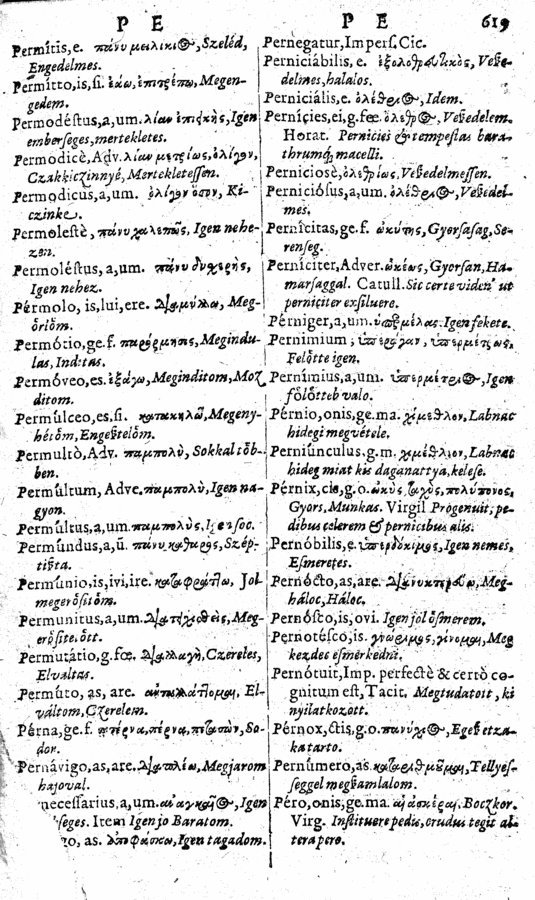 P E
P E
619
Permítis, e. πάνυ μειλικι(ος), Szeléd,
Engedelmes.
Permítto, is, si. ἐάω, ἐπιτρέπω, Megen-
gedem.
Permodéstus, a, um. λίαν ἐπιεικὴς, Igen
emberseges, mertekletes.
Permodicè, Adv. λίαν μετρίως, ὀλίγον,
Czakkiczinnyé, Mertekletessen.
Permodicus, a, um. ὀλίγον ὅσον, Ki-
czinke.
Permolestè, πάνυ χαλεπῶς, Igen nehe-
zen.
Permoléstus, a, um. πάνυ δυχερὴς,
Igen nehez.
Pérmolo, is, lui, ere. Διαμύλλω, Meg-
ȯrlȯm.
Permótio, ge. f. παρόρμησις, Megindu-
las, Inditas.
Permóveo, es. ἐξάγω, Meginditom, Moz
ditom.
Permúlceo, es, si. κατακηλῶ, Megeny-
hétȯm, Engesztelȯm.
Permultò, Adv. παμπολὺ, Sokkal tȯb-
ben.
Permúltum, Adve. παμπολὺ, Igen na-
gyon.
Permúltus, a, um. παμπολὺς, Igen soc.
Permúndus, a, ū. πάνυ καθαρὸς, Szép-
tiszta.
Permúnio, is, ivi, ire. καταφράττω, Jol
megerȯsitȯm.
Permunitus, a, um. Διατειχισθεὶς, Meg-
erȯsitetȯtt.
Permutátio, g. fœ. Διαλλαγὴ, Czereles,
Elvaltas.
Permúto, as, are. ἀνταλλάττομαι, El-
váltom, Czerelem.
Pérna, ge. f. πτέρνα, πέρνα, πετασὼν, So-
dor.
Pernávigo, as, are. Διαπλέω, Megjarom
hajoval.
necessarius, a, um. ἀναγκαῖος, Igen
seges. Item Igen jo Baratom.
go, as. ἀποφάσκω, Igen tagadom.
Pernegatur, Impers. Cic.
Perniciábilis, e. ἐξολοθρευτικὸς, Vesze-
delmes, halalos.
Perniciális, e. ὀλέθριος, Idem.
Perníçies, ei, g. fœ. ὄλεθρος, Veszedelem.
Horat. Pernicies & tempestas bara-
thrumq́; macelli.
Perniciosè, ὀλεθρίως, Veszedelmessen.
Perniciósus, a, um. ὀλέθριος, Veszedel-
mes.
Pernícitas, ge. f. ὠκύτης, Gyorsasag, Se-
renseg.
Perníciter, Adver. ὠκέως, Gyorsan, Ha-
marsaggal. Catull. Sic certe viden' ut
perniciter exsiluere.
Pérniger, a, um. ὑπερμέλας. Igen fekete.
Pernimium, ὑπεράγαν, ὑπερμέτρως,
Felȯtte igen.
Pernímius, a, um. ὑπερμέτριος, Igen
fȯlȯtteb valo.
Pérnio, onis, ge. ma. χίμεθλον, Labnac
hidegi megvétele.
Perniúnculus. g. m. χιμέθλιον, Labnac
hideg miat kis daganattya, kelese.
Pérnix, cis, g. o. ὠκὺς, ταχὺς, πολύπονος,
Gyors, Munkas. Virgil Progenuit; pe-
dibus celerem & pernicibus alis.
Pernóbilis, e. ὑπερδόκιμος, Igen nemes,
Esmeretes.
Pernócto, as, are. Διανυκτερεύω, Meg-
háloc, Háloc.
Pernósco, is, ovi. Igen jol ȯsmerem.
Pernotésco, is. γνώριμος, γίνομαι, Meg
kezdec esmerkedni.
Pernótuit, Imp. perfectè & certò co-
gnitum est, Tacit. Megtudatoit, ki
nyilatkozott.
Pérnox, ctis, g. o. παννύχιος, Egesz etza-
ka tarto.
Pernúmero, as. καταριθμοῦμαι, Tellyes-
seggel megszamlalom.
Péro, onis, ge. ma. αἱ ἀσκέραι, Boczkor.
Virg. Instituere pedis, crudus tegit al-
tera pero.